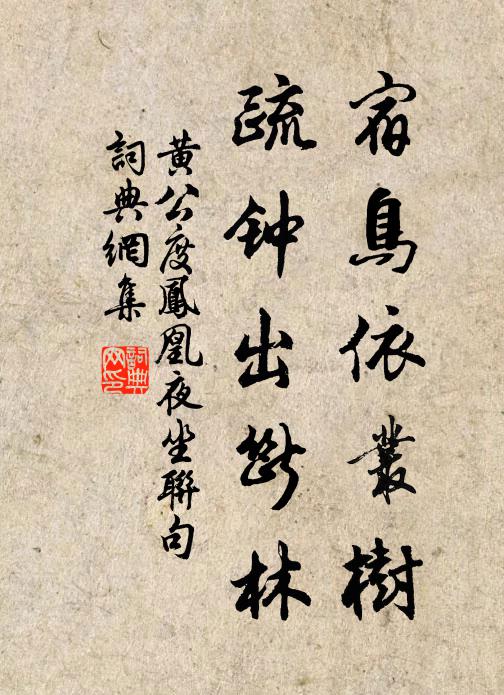 宿鳥依叢樹
疏钟出斷林
黄公度鳳凰夜坐聯句
詞典網集
詞典
网印